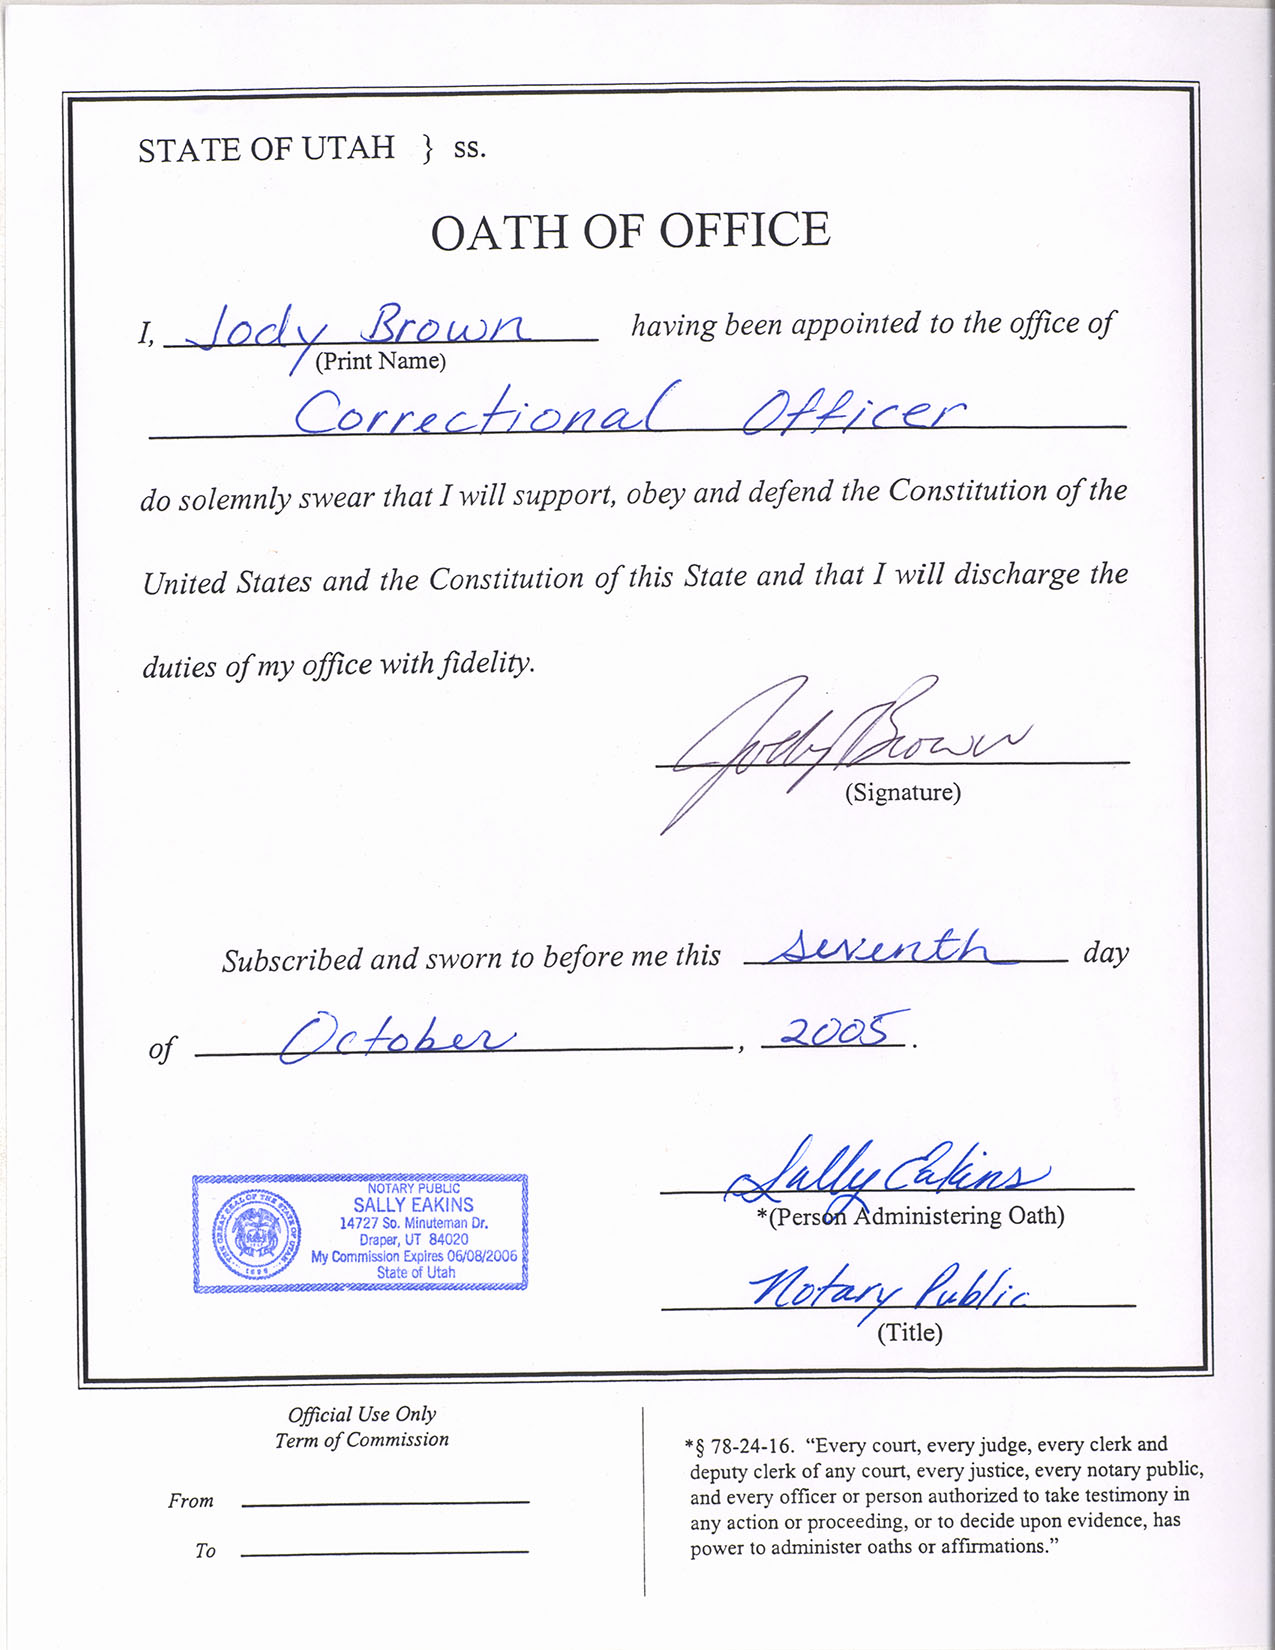 STATE OF UTAH } ss.
OATH OF OFFICE
I, Jody Brown having been appointed to the office of
(Print Name)
Correctional Officer
do solemnly swear that I will support, obey and defend the Constitution of the
United States and the Constitution of this State and that I will discharge the
duties of my office with fidelity.
Jody Brown
(Signature)
Subscribed and sworn to before me this seventh day
of October, 2005.
Sally Eakins
*(Person Administering Oath)
NOTARY PUBLIC
SALLY EAKINS
14727 So. Minuteman Dr.
Draper, UT 84020
My Commission Expires 06/08/2006
State of Utah
THE GREAT SEAL OF THE STATE OF UTAH
1896
Notary Public
(Title)
Official Use Only
Term of Commission
From
To
*§ 78-24-16. “Every court, every judge, every clerk and
deputy clerk of any court, every justice, every notary public,
and every officer or person authorized to take testimony in
any action or proceeding, or to decide upon evidence, has
power to administer oaths or affirmations.”